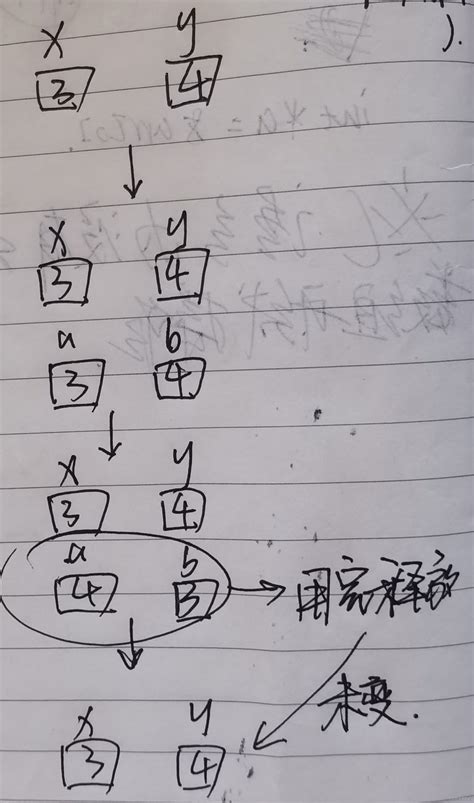 ).
x y
3 4
↓
x y
3 4
a b
3 4
↓
x y
3 4
a b
4 3 → 用完释放
↓ 未变.
x y
3 4